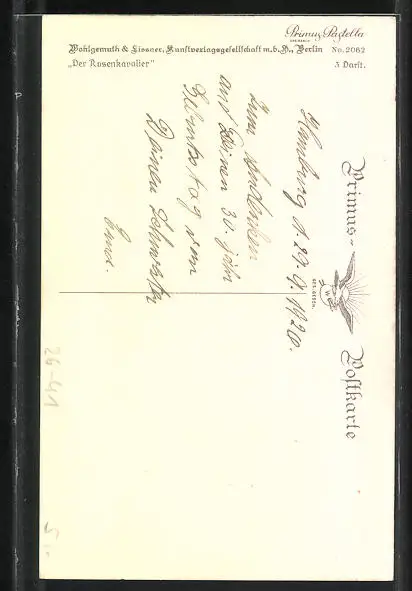 Primus Pastella
Wohlgemuth & Lissner, Kunstverlagsgesellschaft m.b.H., Berlin No. 2062
„Der Rosenkavalier“ 5 Darst.
Primus-Postkarte
GES. GESCH.
W L
Hamburg d. 29.9.1920.
Zum Andenken
auf Deinen 30. jähr
Geburtstag von
Deinem Schwester
Erna.
26-41
5.-